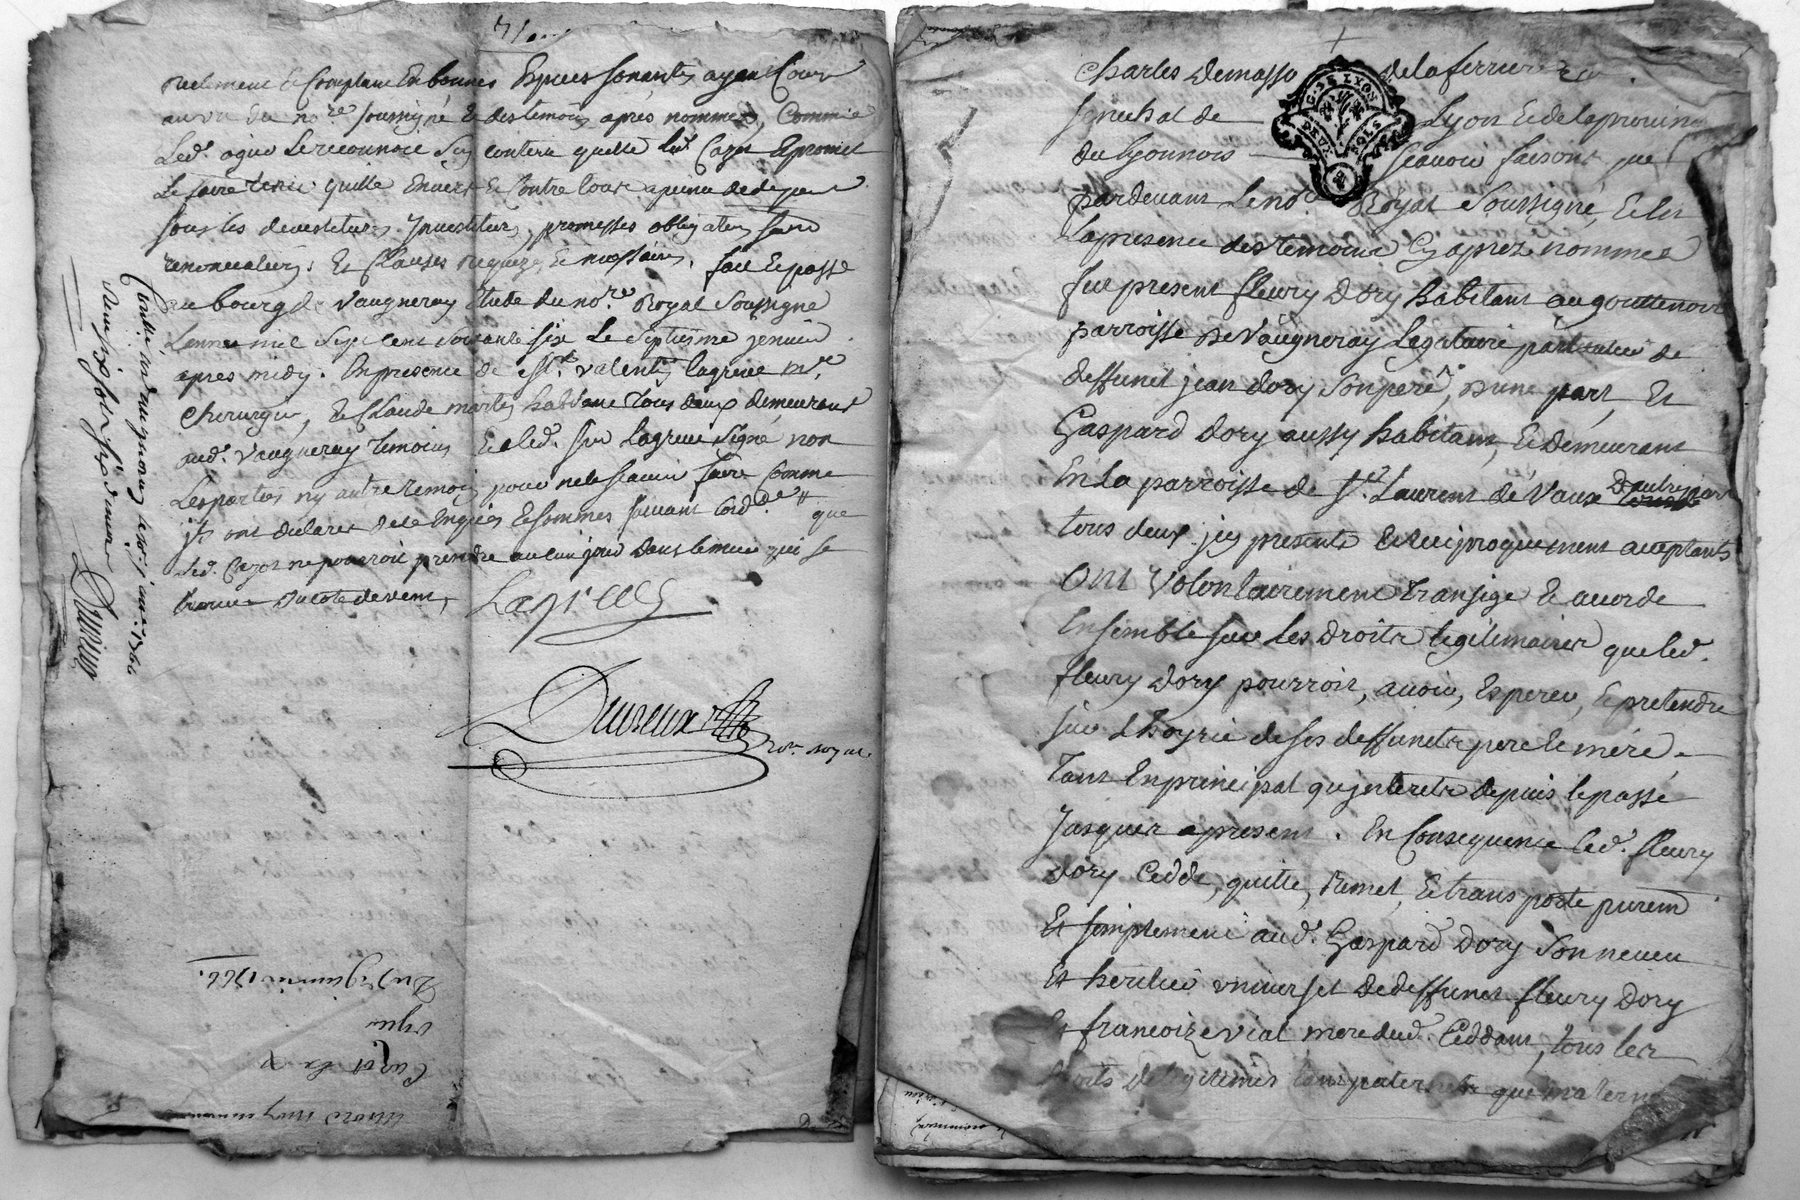 reelement & Comptant En bonnes Especes sonantes ayant Cour
au vu du no.re soussigné & des temoins après nommés, Comme
Led. agier Le reconnoit Sen contente quitte led. Cazot & promet
Le faire tenir quitte Envers & Contre tous a peine de depens
sous les devestitures Jnvestitures, promesses obligations sans
renonciations & Clauses requizes & necessaires, fait & passé
au bourg de Vaugneray Etude du no.re Royal Soussigné
Lannée mil Sept cent soixante six Le Septieme jenvier
apres midy. En presence de Sr. Valentin lagreve m.re
Chirurgien, & Claude martin habitant Tous deux demeurant
aud. Vaugneray Temoins Led. Sr Lagreve Signé non
Les parties ny autre temoin pour ne le scavoir faire Comme
jls ont declarez de ce Enquis & sommés suivant lord.ce que
Led. Cazot ne pourroit prendre aucun jour dans le mur qui se
trouve du cote de vent,
Dureux
no.re royal
Controllé a Vaugneray le janv. 1766
Reçu six sols Six deniers
Dureux
Du 7 janvier 1766.
agier
Cazot
Charles de masso de la ferriere
senechal de Lyon & de la province
du lyonnois scavoir faisons que
pardevant Le no.re Royal Soussigné, & En
La presence des temoins Cy aprez nommés
fut present fleury Dory habitant au gouttenoire
parroisse de Vaugneray Legataire particulier de
deffunct jean Dory Son pere, d'une part, Et
Gaspard Dory aussy habitant, & demeurant
En la parroisse de St. Laurent de Vaux D'autre part
tous deux jcy presents & reciproquement acceptants
Ont Volontairement transige & acorde
Ensemble sur les Droits legitimaires que led.
fleury Dory pourroit, avoir, Esperer, & pretendre
sur l'hoyrie de ses deffuncts pere & mere
Tant En principal qu'jnterets depuis le passé
Jusques a present. En Consequence led. fleury
Dory Cedde, quitte, Remet, & transporte purem.t
Et simplement aud. Gaspard Dory Son neveu
Et heritier universel de deffunct fleury Dory
Et francoize vial mere dud. Ceddant, tous les
droits de legitimes tant paternels que maternels
G. DE LYON
DEUX SOLS